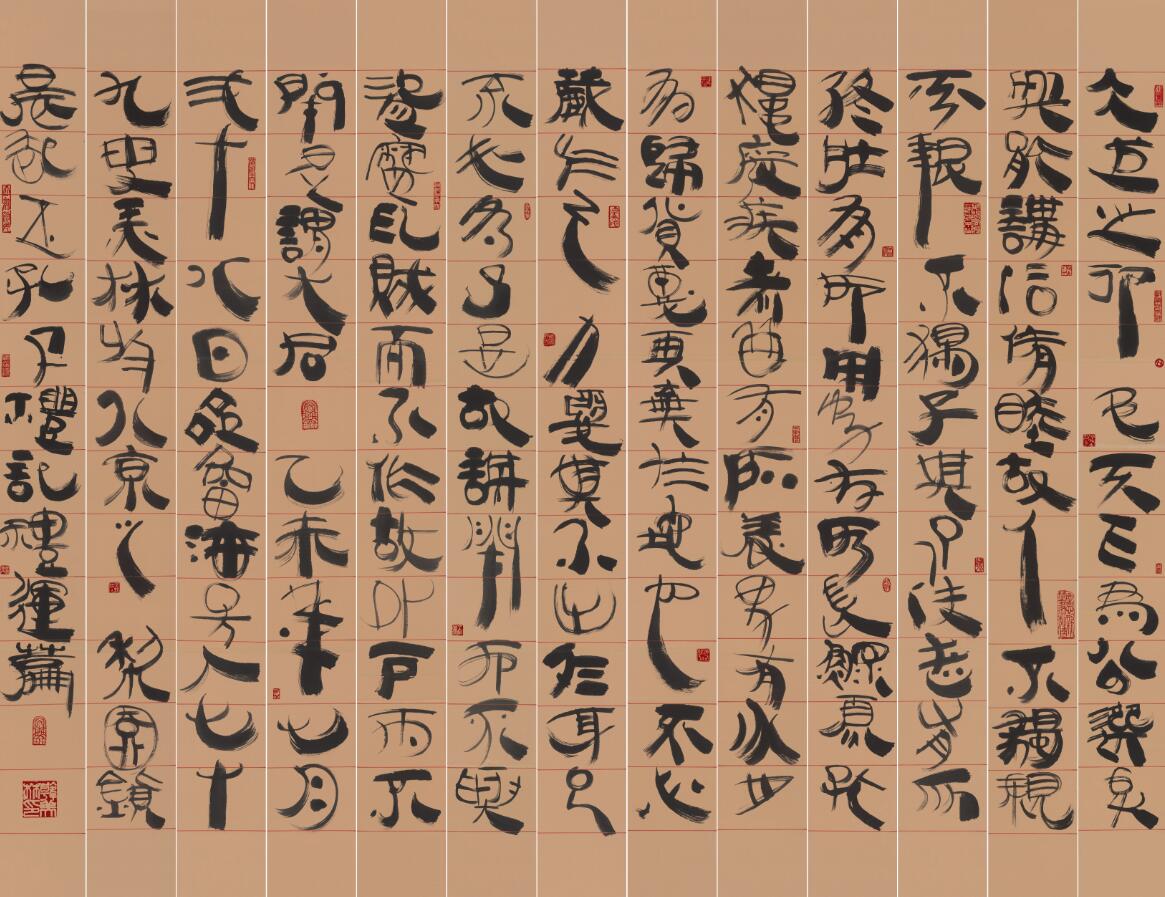 大道之行也天下為公選賢
與能講信脩睦故人不獨親
其親不獨子其子使老有所
終壯有所用幼有所長鰥寡孤
獨廢疾者皆有所養男有分女
有歸貨惡其棄於地也不必
藏於己力惡其不出於身也
不必為己是故謀閉而不興
盜竊亂賊而不作故外戶而不
閉是謂大同乙未年七月
弍十八日海子人七十
九叟美林於北京之梨園鎮
是孔子禮記禮運篇